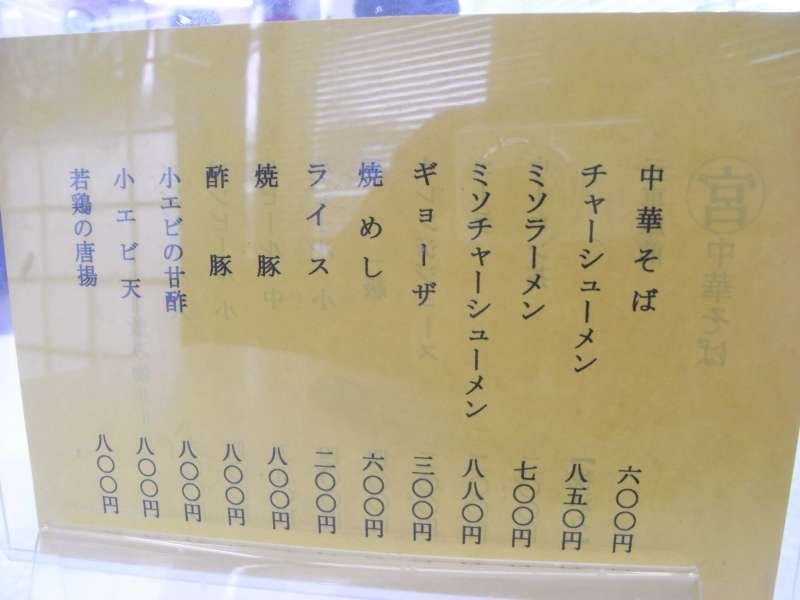 中華そば 六〇〇円
チャーシューメン 八五〇円
ミソラーメン 七〇〇円
ミソチャーシューメン 八八〇円
ギョーザ 三〇〇円
焼めし 六〇〇円
ライス 二〇〇円
焼豚 八〇〇円
酢豚 八〇〇円
小エビの甘酢 八〇〇円
小エビ天 八〇〇円
若鶏の唐揚 八〇〇円
宮 中華そば